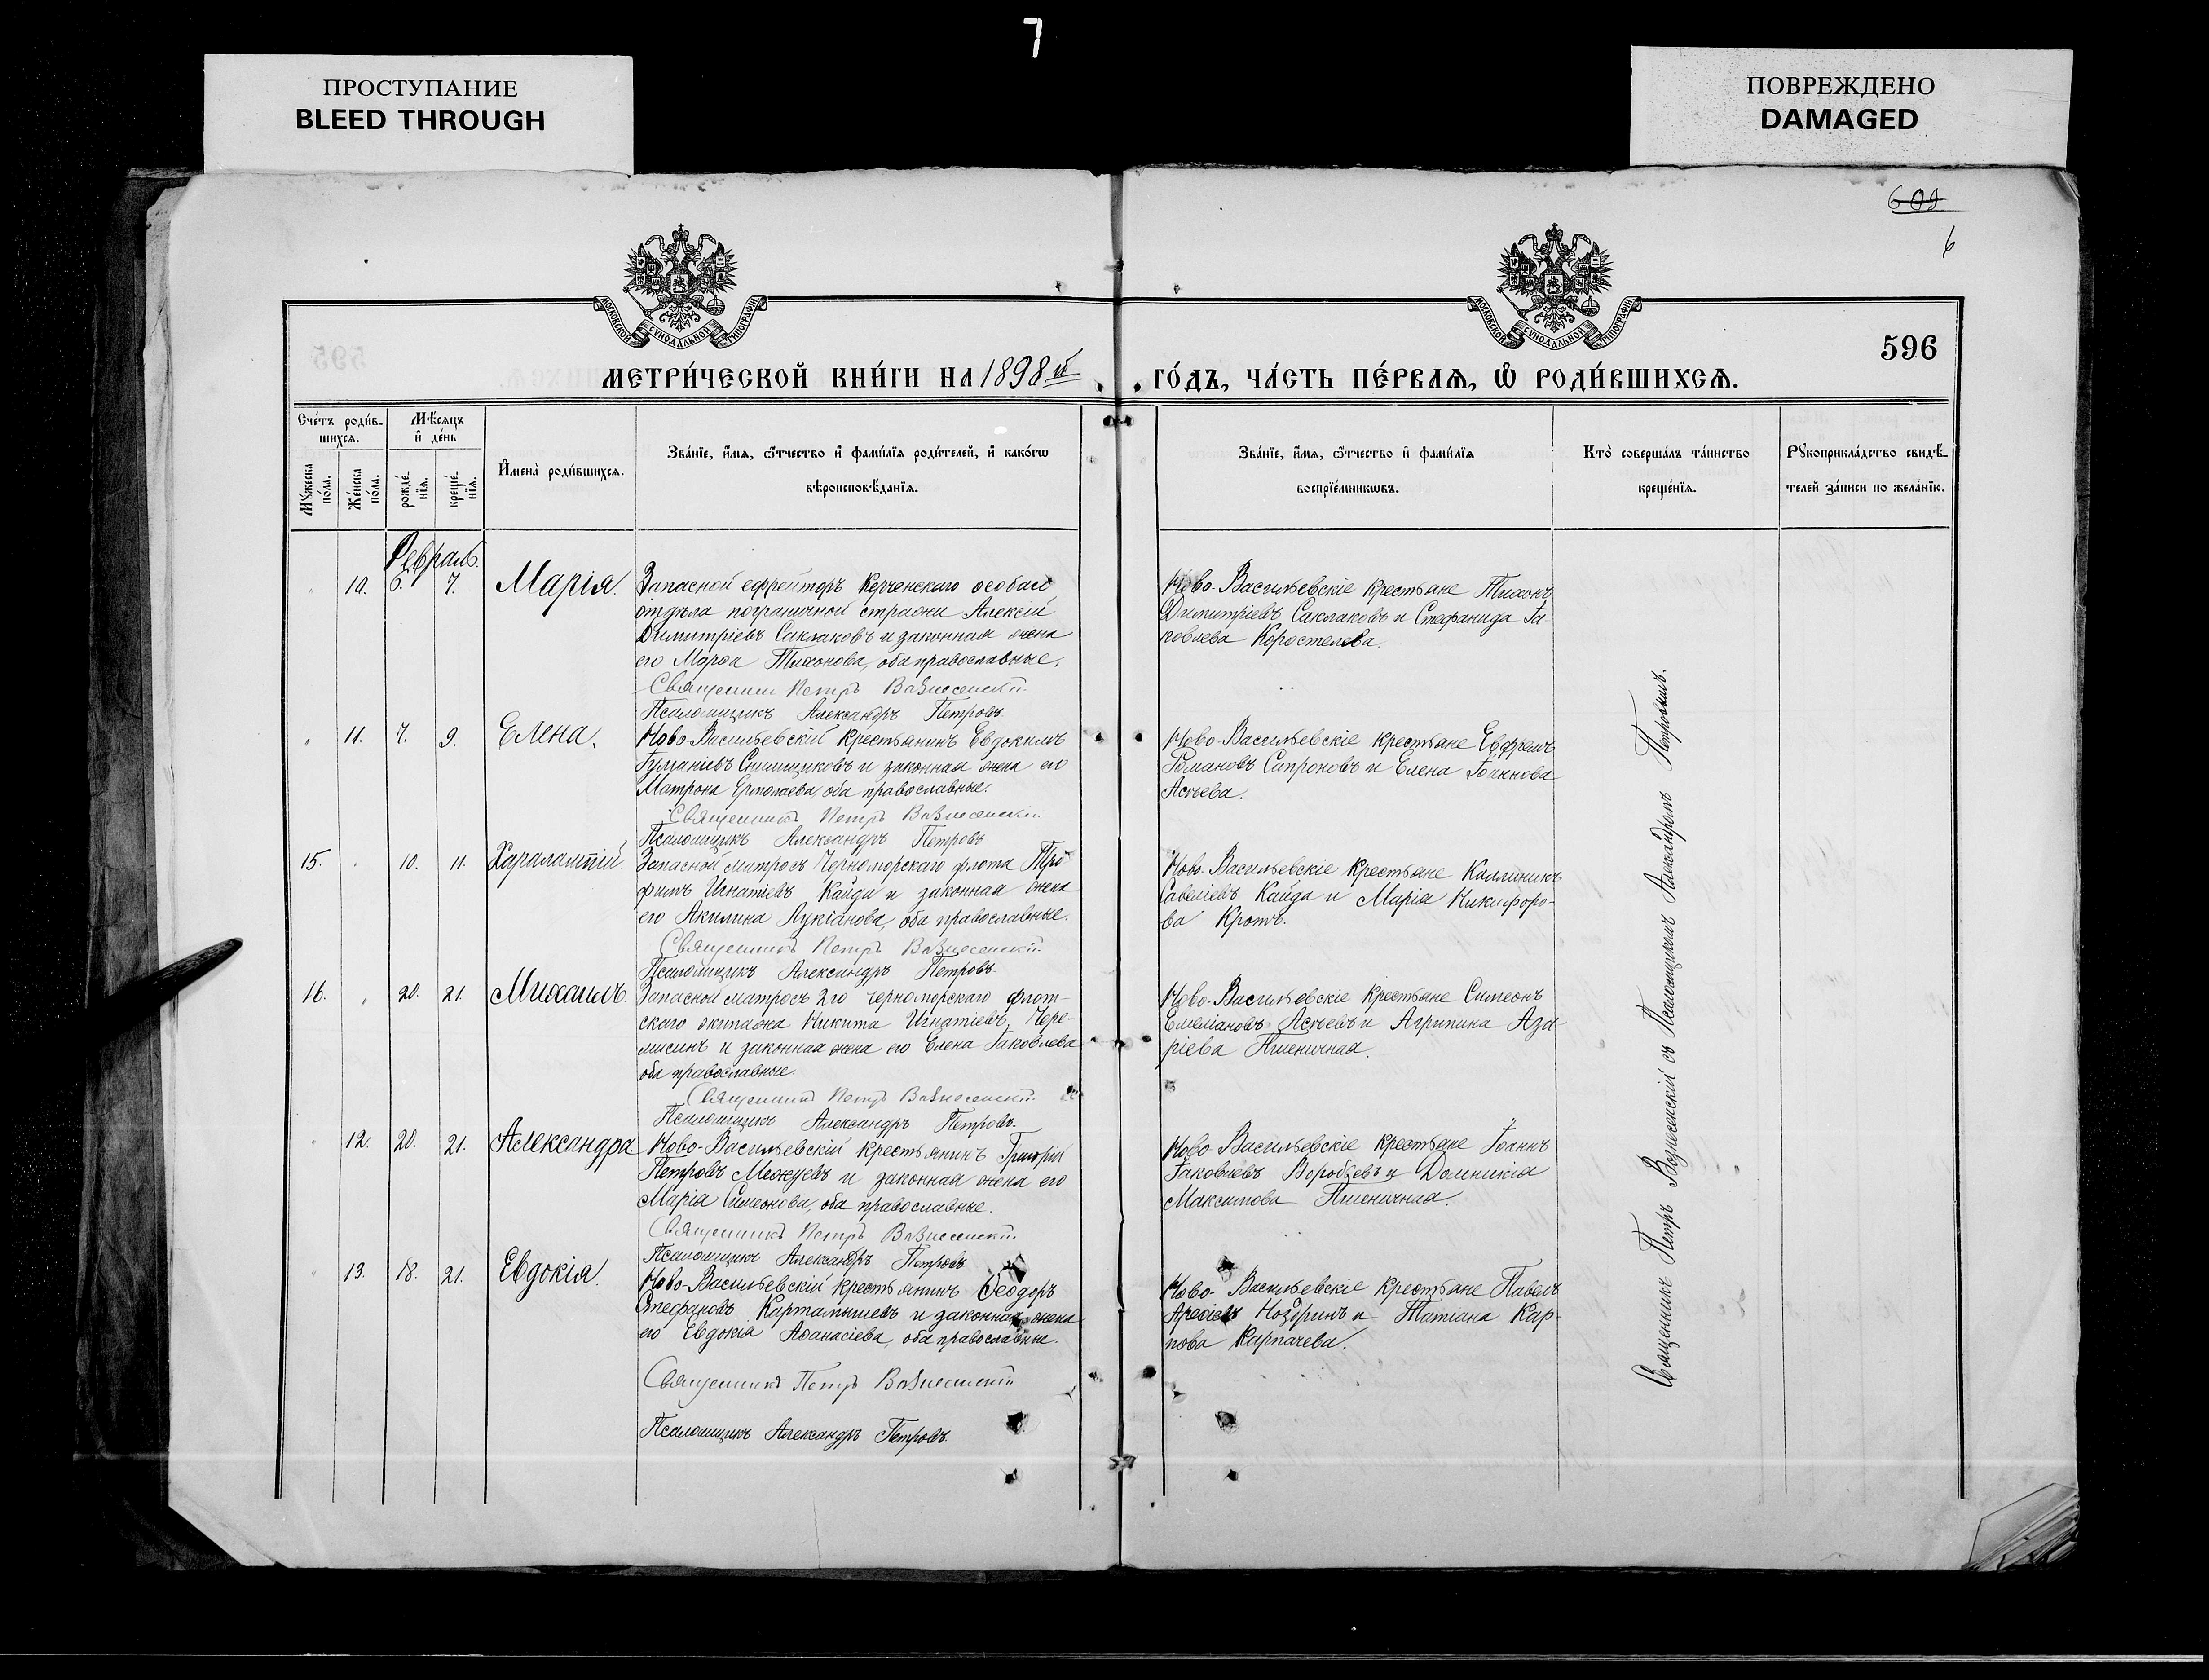 7
ПРОСТУПАНИЕ
BLEED THROUGH
ПОВРЕЖДЕНО
DAMAGED
609
6
МОСКОВСКОЙ СѴНОДАЛЬНОЙ ТИПОГРАФІИ
МОСКОВСКОЙ СѴНОДАЛЬНОЙ ТИПОГРАФІИ
596
МЕТРИ́ЧЕСКОЙ КНИ́ГИ НА 1898й
ГО́ДЪ, ЧА́СТЬ ПЕ́РВАѦ, Ѡ҆ РОДИ́ВШИХСѦ.
Сче́тъ роди́в-
шихсѧ.
Мѣ́сѧцъ
и҆ де́нь
Мꙋ́жеска
по́ла.
Же́нска
по́ла.
рожде́-
нїѧ.
креще́-
нїѧ.
И҆мена̀ роди́вшихсѧ.
Зва́нїе, и҆́мѧ, ѻ҆́тчество и҆ фами́лїѧ роди́телей, и҆ како́гѡ
вѣроисповѣ́данїѧ.
Зва́нїе, и҆́мѧ, ѻ҆́тчество и҆ фами́лїѧ
воспрїе́мникѡвъ.
Кто̀ соверша́лъ та́инство
креще́нїѧ.
Рꙋкоприкла́дство свидѣ́-
телей за́писи по жела́нїю.
Февраль.
10. 6. 7. Марія.
Запасной ефрейторъ Керченскаго особаго
отдѣла пограничной стражи Алексій
Димитріевъ Саклаковъ и законная жена
его Марѳа Тихонова, оба православные.
Священникъ Петръ Вознесенскій
Псаломщикъ Александръ Петровъ.
Ново-Васильевскіе крестьяне Тихонъ
Димитріевъ Саклаковъ и Стефанида Іа
ковлева Коростелева.
11. 7. 9. Елена.
Ново-Васильевскій крестьянинъ Евдокимъ
законная жена его
Матрона Ермолаева, оба православные.
Священникъ Петръ Вознесенскій
Псаломщикъ Александръ Петровъ
Ново-Васильевскіе крестьяне Евфремъ
Романовъ Сапроновъ и Елена Іоаннова
Асѣева.
15. 10. 11. Харалампій.
Запасной матросъ Черноморскаго флота Тро
фимъ Игнатіевъ Кайда и законная жена
его Акилина Лукіанова, оба православные.
Священникъ Петръ Вознесенскій
Псаломщикъ Александръ Петровъ.
Ново-Васильевскіе крестьяне Каллиникъ
Савеліевъ Кайда и Марія Никифоро-
ва Кротъ.
16. 20. 21. Михаилъ.
Запасной матросъ 2го черноморскаго флот-
скаго экипажа Никита Игнатіевъ Чере-
мисинъ и законная жена его Елена Іаковлева
оба православные.
Священникъ Петръ Вознесенскій
Псаломщикъ Александръ Петровъ.
Ново-Васильевскіе крестьяне Симеонъ
Емеліановъ Асѣевъ и Агрипина Аза-
ріева Пшеничная.
12. 20. 21. Александра
Ново-Васильевскій крестьянинъ Григорій
Петровъ Межуевъ и законная жена его
Марія Симеонова, оба православные.
Священникъ Петръ Вознесенскій
Псаломщикъ Александръ Петровъ
Ново-Васильевскіе крестьяне Іоаннъ
Іаковлевъ Воробьевъ и Домникія
Максимова Пшеничная.
13. 18. 21. Евдокія.
Ново-Васильевскій крестьянинъ Ѳеодоръ
Стефановъ Картамышевъ и законная жена
его Евдокія Аѳанасіева, оба православные.
Священникъ Петръ Вознесенскій
Псаломщикъ Александръ Петровъ.
Ново-Васильевскіе крестьяне Павелъ
Ноздринъ и Татіана Кар-
пова Карпачева.
Священникъ Петръ Вознесенскій съ Псаломщикомъ Александромъ Петровымъ.